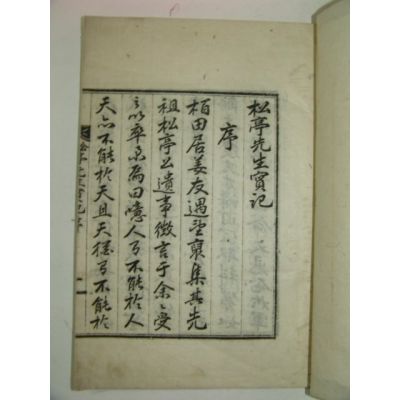 松亭先生實記
序
栢田居姜友遇望裒集其先
祖松亭公遺事徵言于余余受
言以卒業爲曰噫人乃不能於人
天亦不能於天且天猶乃不能於